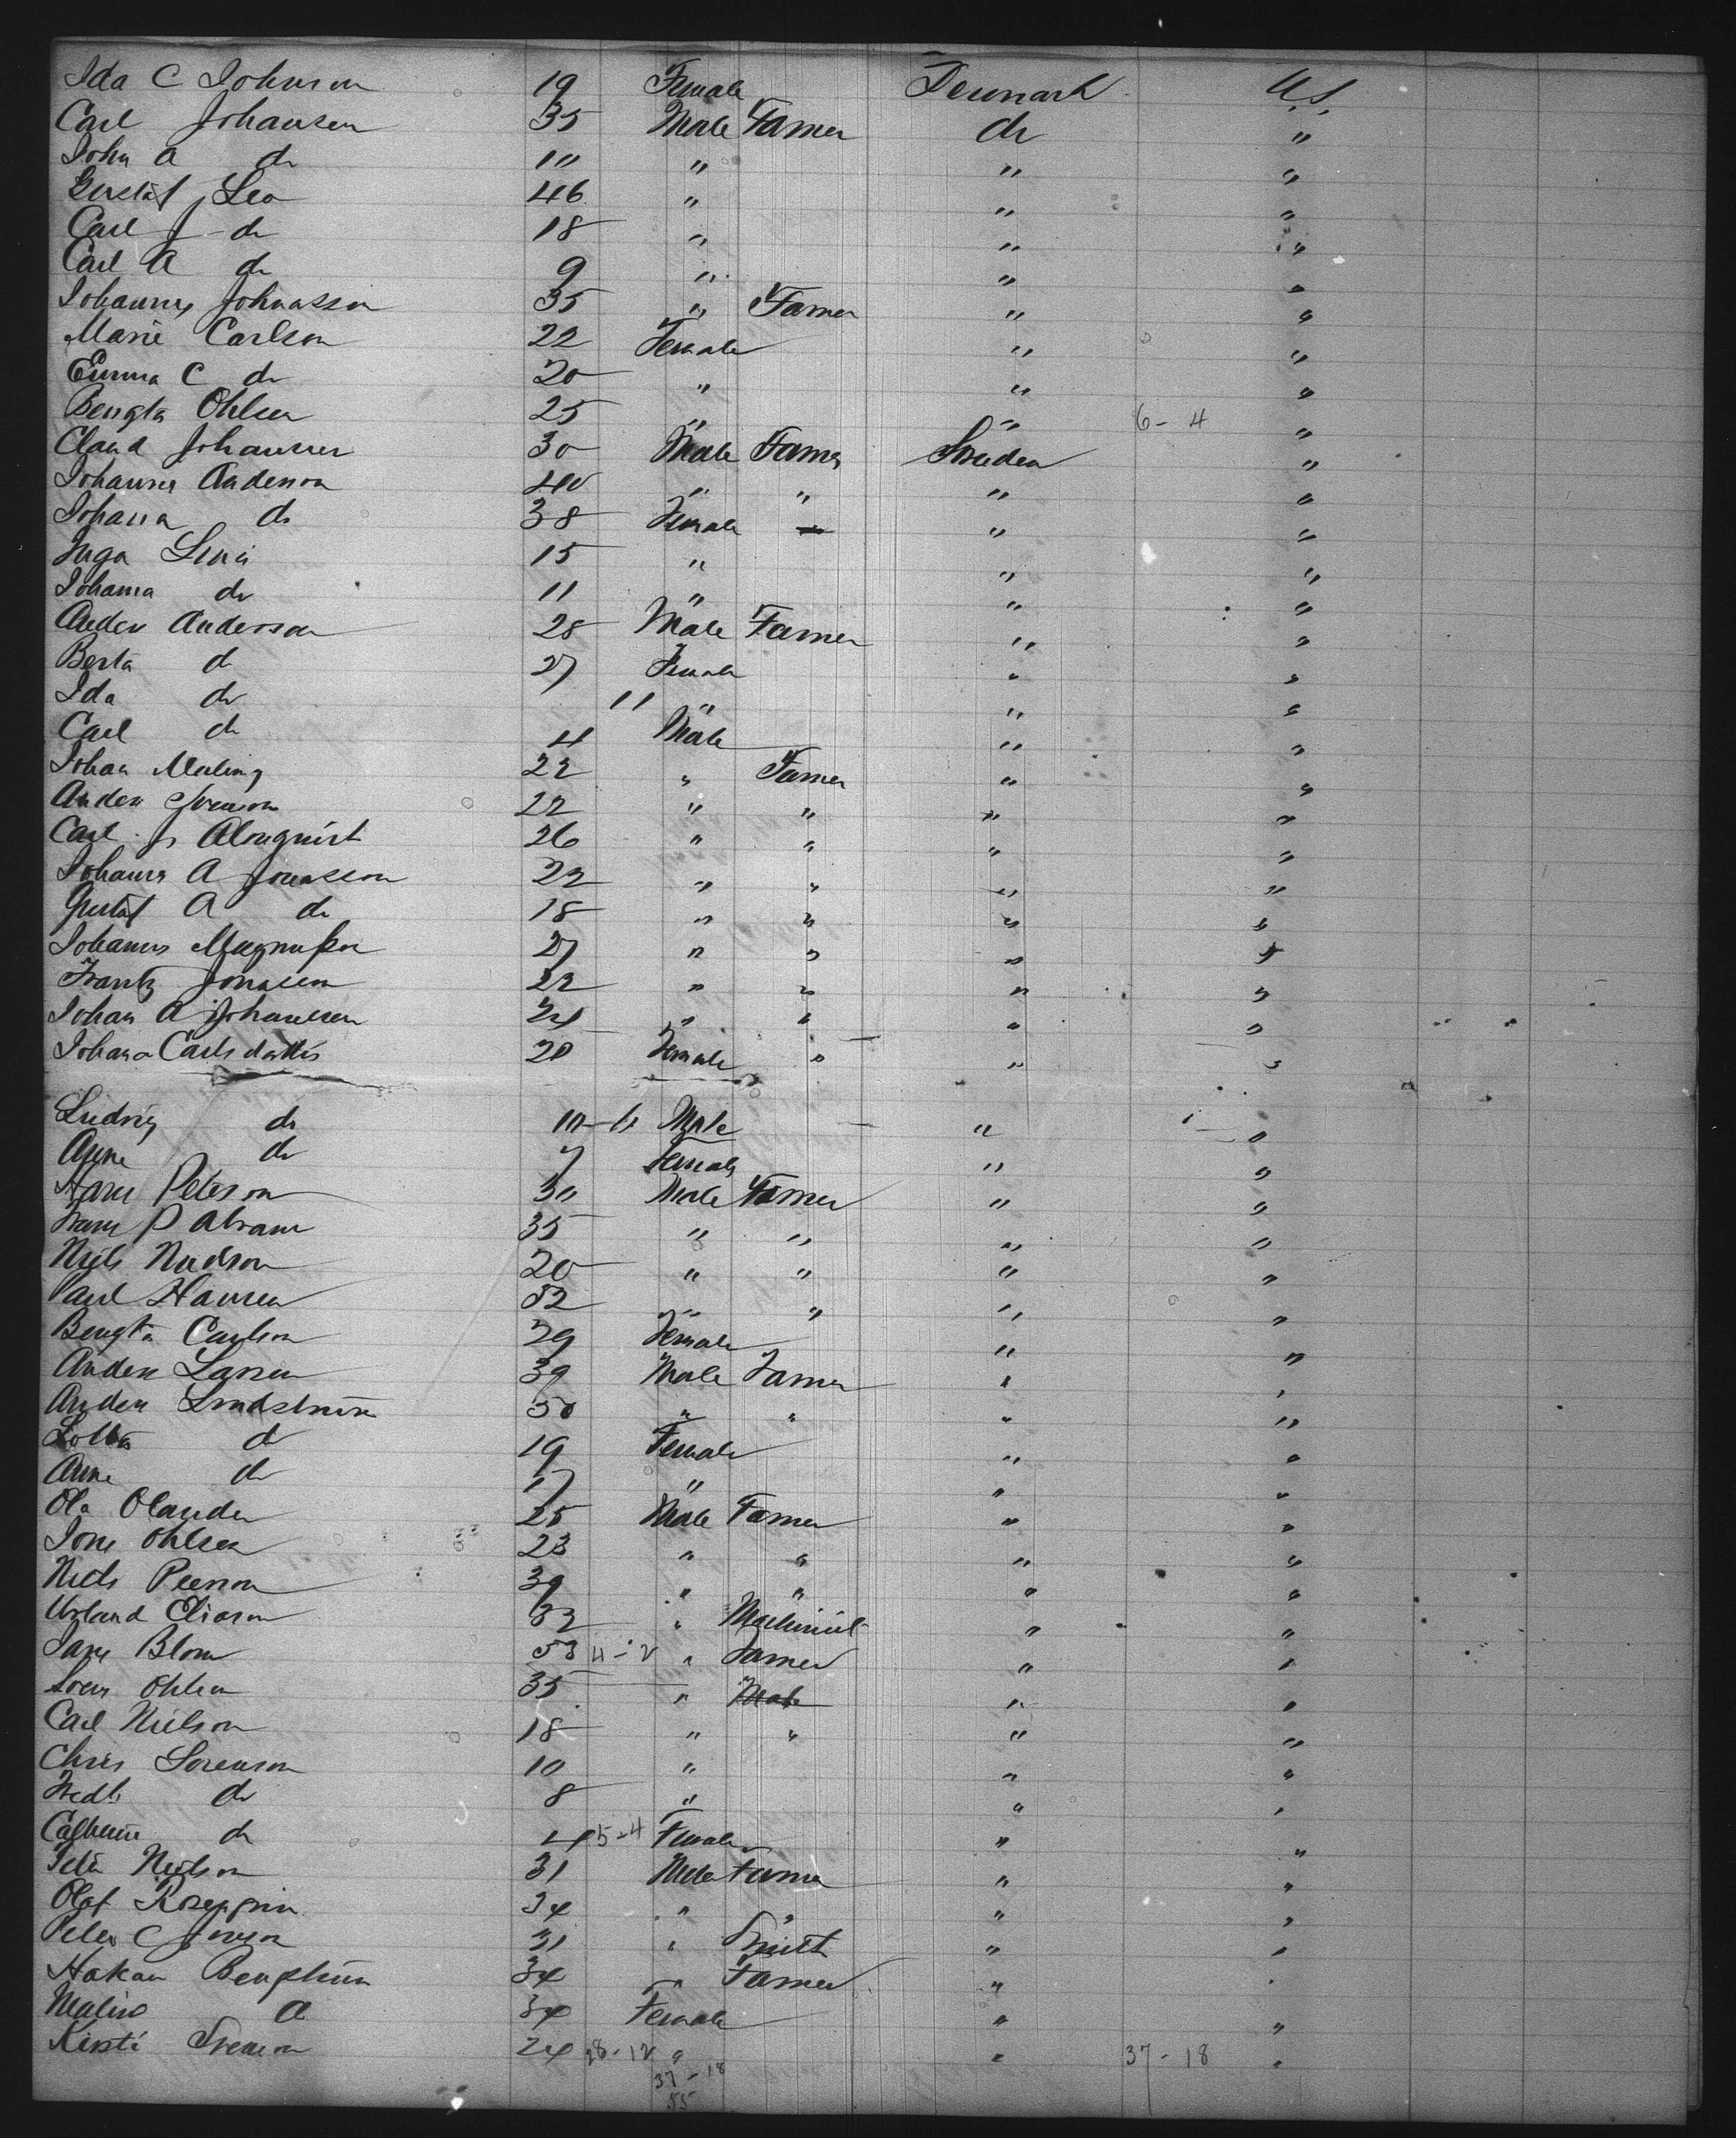 Ida C Johnson 19 Female Denmark U.S.
Carl Johansen 35 Male Farmer do "
John A do 10 " " "
Gustaf Leo 46 " " "
Carl J do 18 " " "
Carl A do 9 " " "
Johannes Johnasson 35 " Farmer " "
Marie Carlson 22 Female " "
Emma C do 20 " " "
Bengta Ohlsen 25 " " 6-4 "
Claud Johansen 30 Male Farmer Sweden "
Johannes Anderson 40 " " " "
Johana do 38 Female " "
Inga Lena 15 " " "
Johanna do 11 " " "
Anders Anderson 28 Male Farmer " "
Berta do 27 Female " "
Ida do 11 " " "
Carl do 4 Male " "
Johan Maling 22 " Farmer " "
Anders Swenson 22 " " " "
Carl J Almquist 26 " " " "
Johannes A Jonasson 22 " " " "
Gustaf A do 18 " " " "
Johannes Magnusson 27 " " " "
Frantz Jonasson 22 " " " "
Johan A Johansen 24 " " " "
Johana Carlsdatter 20 Female " " "
Ludvig do 10-6 Male " "
Anne do 7 Female " "
Hans Peterson 30 Male Farmer " "
Hans P Abram 35 " " " "
Niels Nudson 20 " " " "
Paul Hansen 32 " " " "
Bengta Carlson 29 Female " "
Anders Larsen 39 Male Farmer " "
Anders Lindstrom 50 " " " "
Lotta do 19 Female " "
Anne do 17 " " "
Ola Olander 25 Male Farmer " "
Jons Ohlsen 23 " " " "
Niels Peerson 39 " " " "
Eliason 32 " Machinist " "
Blom 53 4-2 " Farmer " "
Soren Ohlsen 35 " Male " "
Carl Nielson 18 " " " "
Chris Sorenson 10 " " "
Fredk do 8 " " "
Catherine do 4 5-4 Female " "
Nielson 31 Male Farmer " "
Olof 34 " " " "
Peter C Jonson 31 " Smith " "
Hakan 34 " Farmer " "
Malin 34 Female " "
Kirsti Svenson 24 28-12 " " 37-18 "
37-18
55